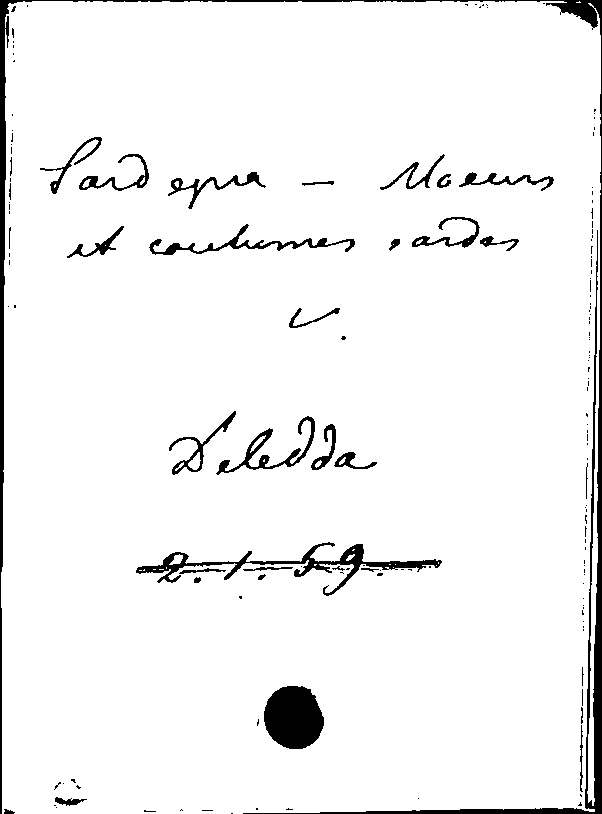 Sardegna — Moeurs
et coutumes sardes
V.
Deledda
2.1.59.